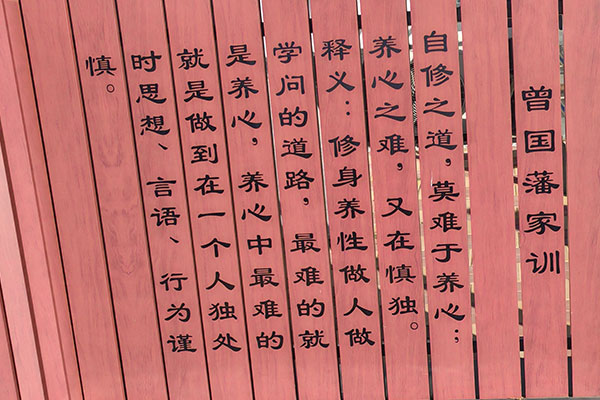 曾国藩家训
自修之道，莫难于养心；
养心之难，又在慎独。
释义：修身养性做人做
学问的道路，最难的就
是养心，养心中最难的
就是做到在一个人独处
时思想、言语、行为谨
慎。